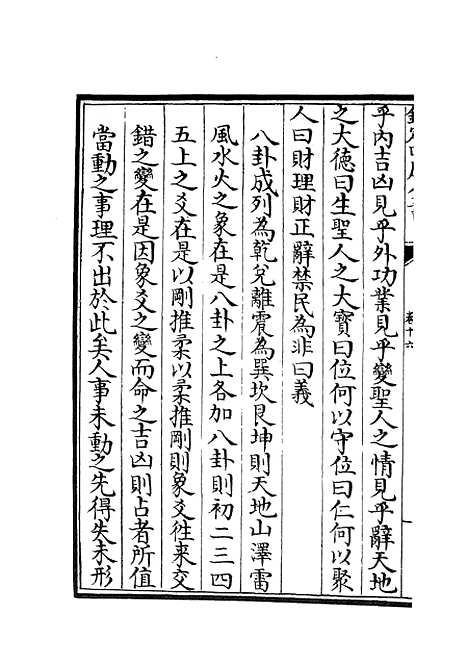 欽定四庫全書
卷十六
乎內吉凶見乎外功業見乎變聖人之情見乎辭天地
之大德曰生聖人之大寶曰位何以守位曰仁何以聚
人曰財理財正辭禁民為非曰義
八卦成列為乾兌離震為巽坎艮坤則天地山澤雷
風水火之象在是八卦之上各加八卦則初二三四
五上之爻在是以剛推柔以柔推剛則象爻往来交
錯之變在是因象爻之變而命之吉凶則占者所值
當動之事理不出於此矣人事未動之先得失未形